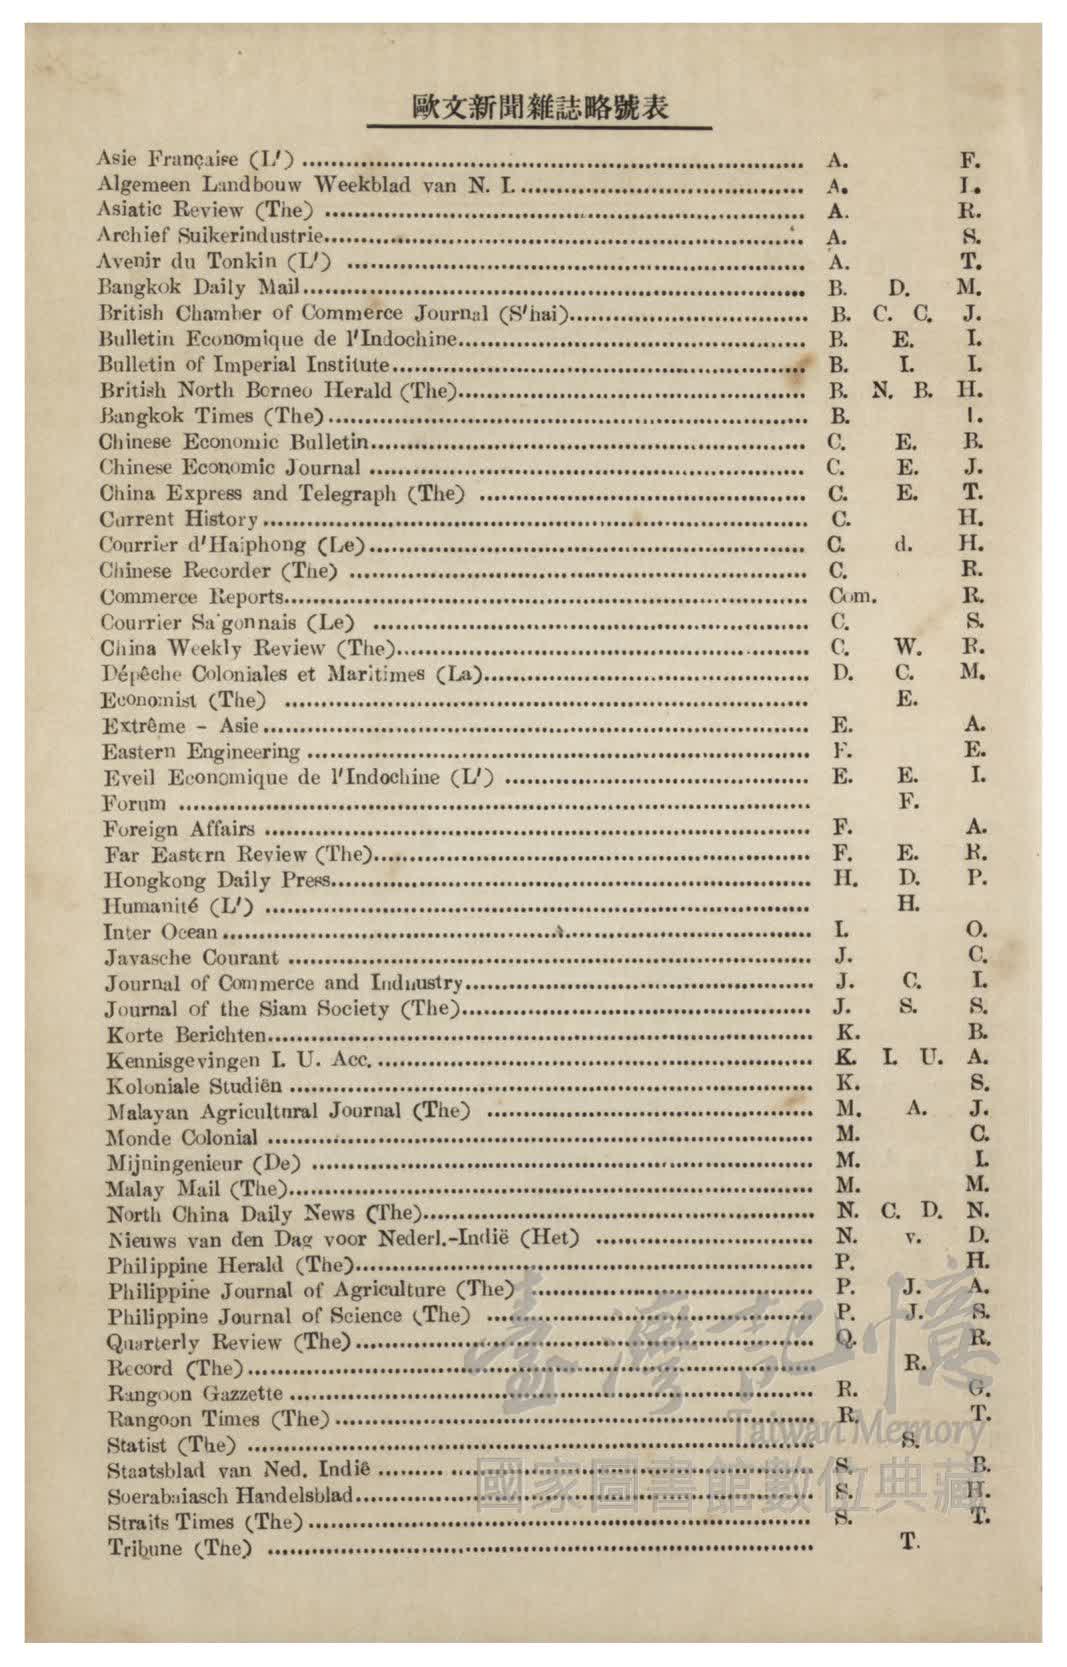 歐文新聞雜誌略號表
Asie Française (L') A. F.
Algemeen Landbouw Weekblad van N. I. A. L.
Asiatic Review (The) A. R.
Archief Suikerindustrie A. S.
Avenir du Tonkin (L') A. T.
Bangkok Daily Mail B. D. M.
British Chamber of Commerce Journal (S'hai) B. C. C. J.
Bulletin Economique de l'Indochine B. E. I.
Bulletin of Imperial Institute B. I. I.
British North Borneo Herald (The) B. N. B. H.
Bangkok Times (The) B.
Chinese Economic Bulletin C. E. B.
Chinese Economic Journal C. E. J.
China Express and Telegraph (The) C. E. T.
Current History C. H.
Courrier d'Haiphong (Le) C. d. H.
Chinese Recorder (The) C. R.
Commerce Reports Com. R.
Courrier Sa gonnais (Le) C. S.
China Weekly Review (The) C. W. R.
Dépêche Coloniales et Maritimes (La) D. C. M.
Economist (The) E.
Extrême - Asie E. A.
Eastern Engineering E. E.
Eveil Economique de l'Indochine (L') E. E. I.
Forum F.
Foreign Affairs F. A.
Far Eastern Review (The) F. E. R.
Hongkong Daily Press H. D. P.
Humanité (L') H.
Inter Ocean I. O.
Javasche Courant J. C.
Journal of Commerce and Induustry J. C. I.
Journal of the Siam Society (The) J. S. S.
Korte Berichten K. B.
Kennisgevingen I. U. Acc. K. I. U. A.
Koloniale Studiën K. S.
Malayan Agricultural Journal (The) M. A. J.
Monde Colonial M. C.
Mijningenieur (De) M. I.
Malay Mail (The) M. M.
North China Daily News (The) N. C. D. N.
Nieuws van den Dag voor Nederl.-Indië (Het) N. v. D.
Philippine Herald (The) P. H.
Philippine Journal of Agriculture (The) P. J. A.
Philippine Journal of Science (The) P. J. S.
Quarterly Review (The) Q. R.
Record (The) R.
Rangoon Gazzette R. G.
Rangoon Times (The) R. T.
Statist (The) S.
Staatsblad van Ned. Indië S. B.
Soerabaiasch Handelsblad S. H.
Straits Times (The) S. T.
Tribune (The) T.
臺灣記憶
Taiwan Memory
國家圖書館數位典藏